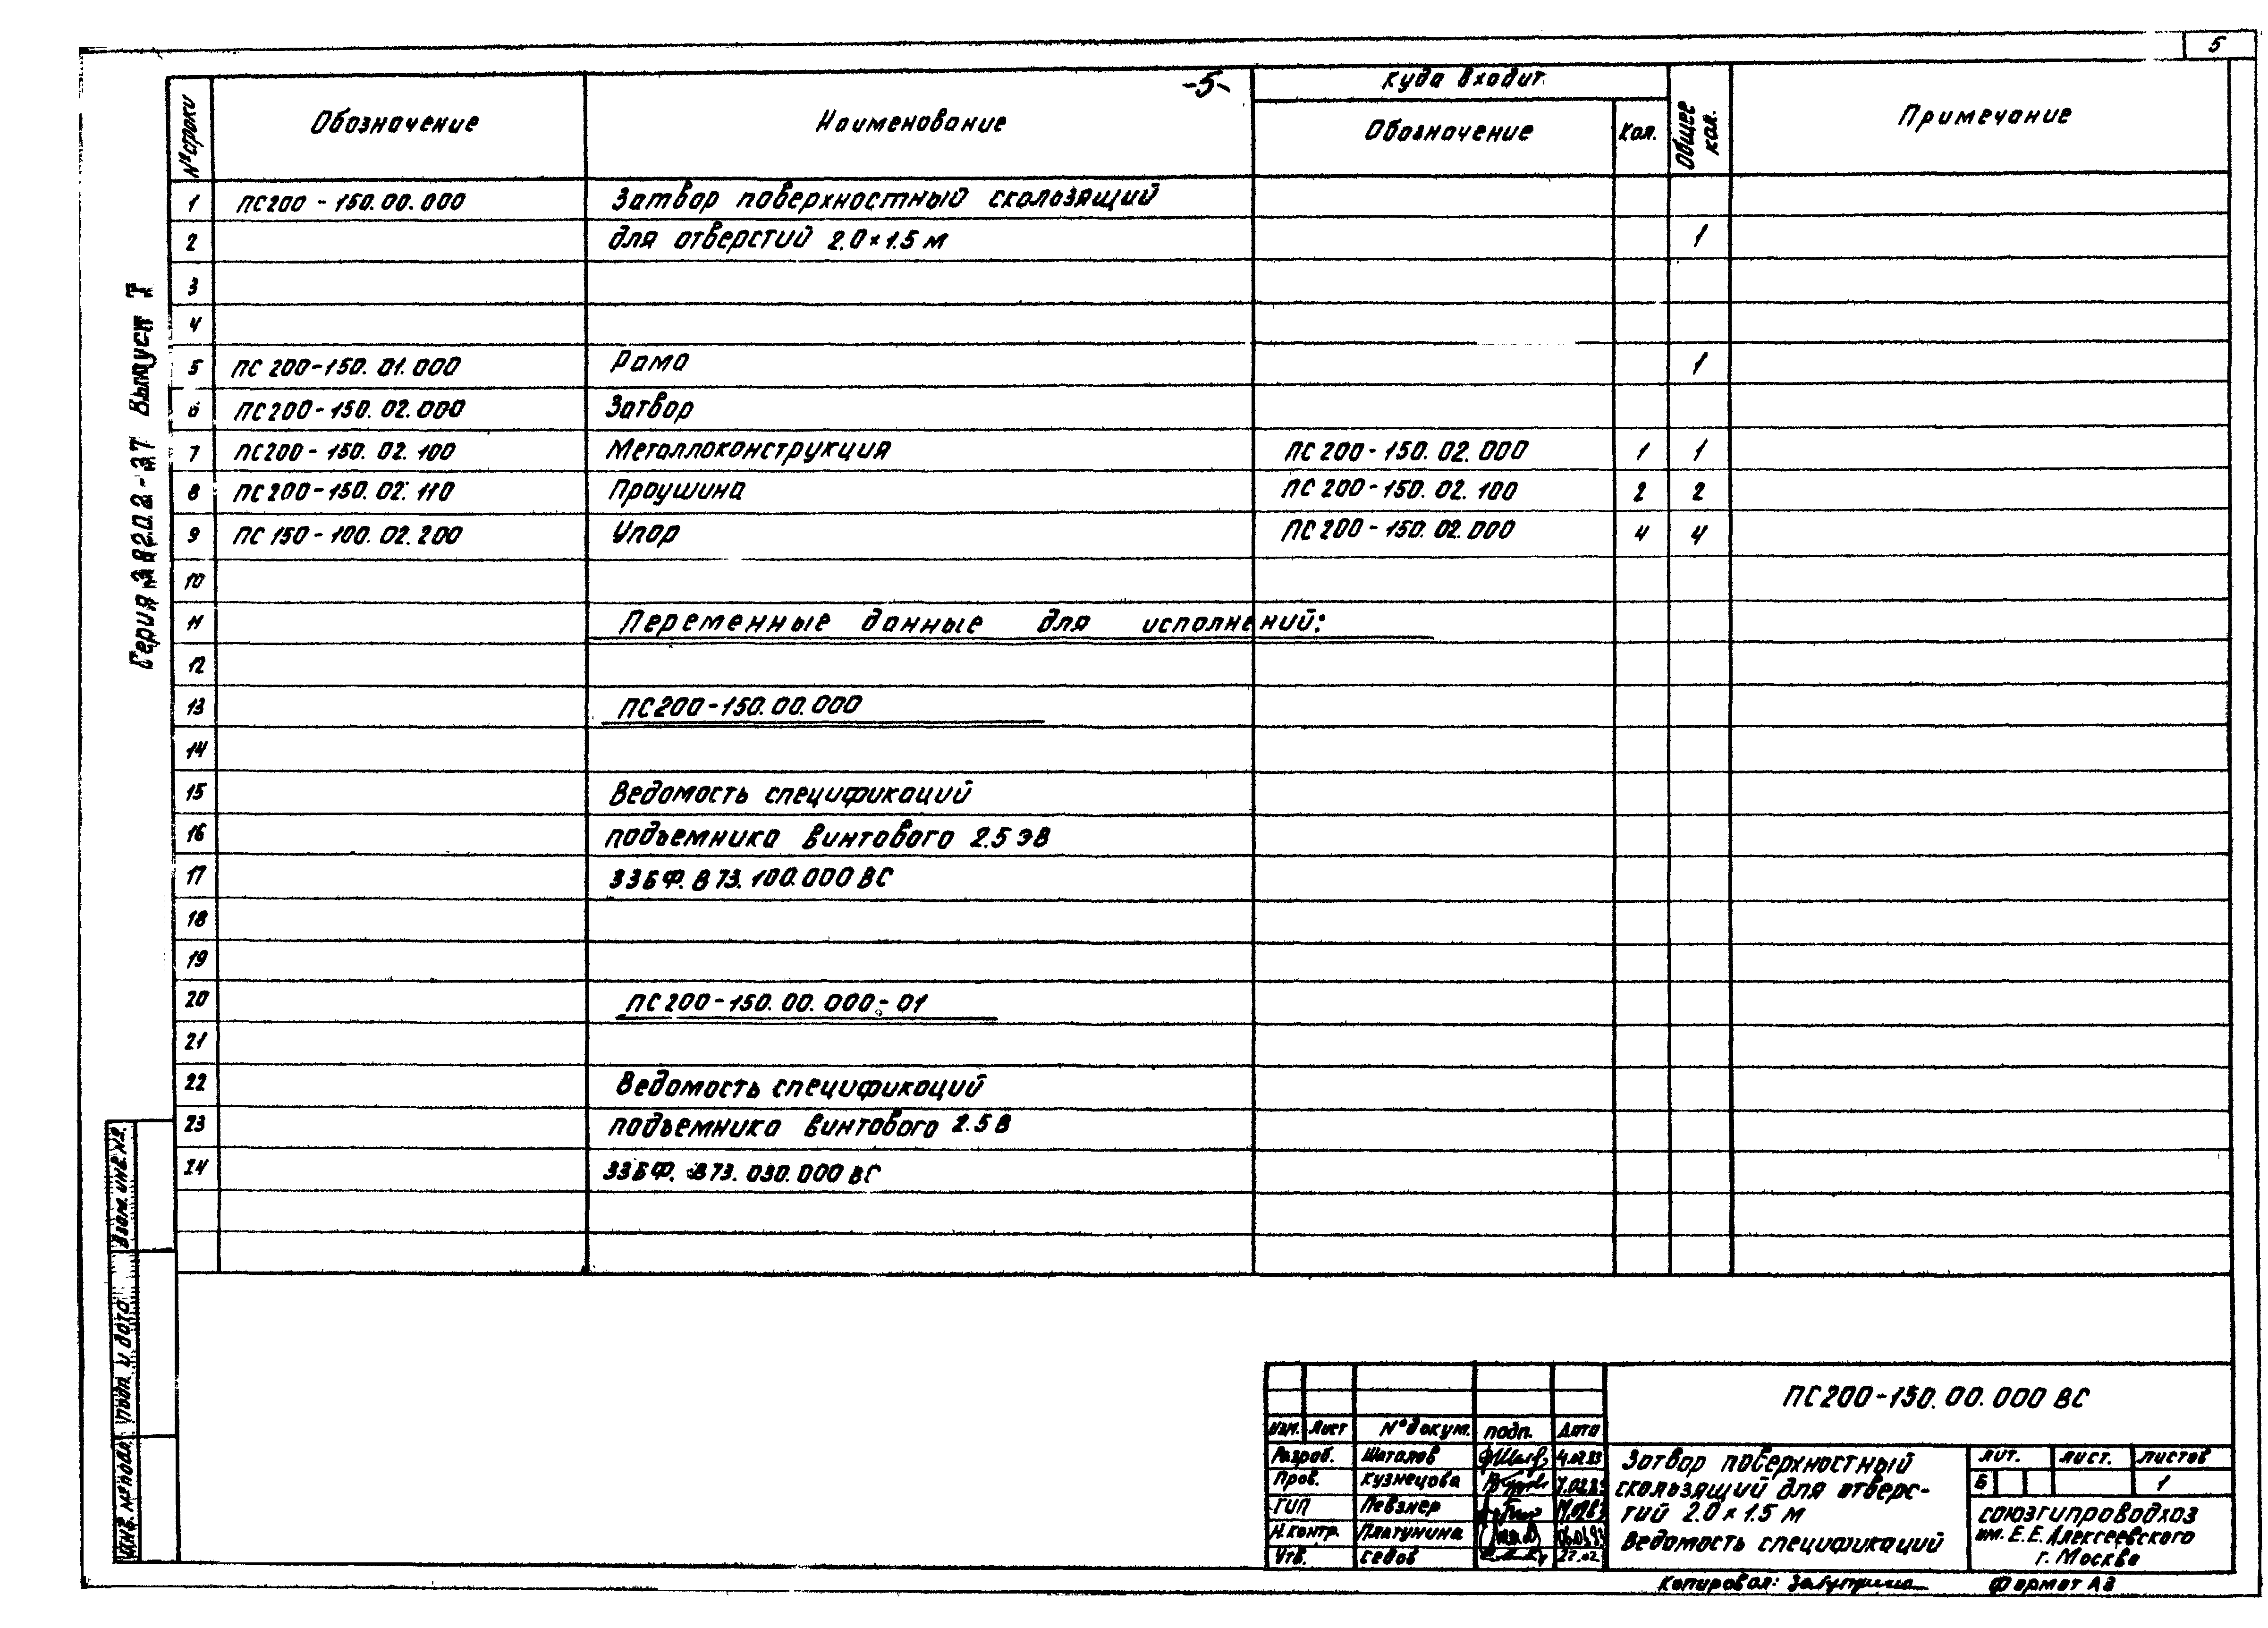 5
-5-
№ строки
Обозначение
Наименование
Куда входит
Обозначение
Кол.
Общее кол.
Примечание
1 ПС200-150.00.000 Затвор поверхностный скользящий
2 для отверстий 2.0×1.5 м 1
3
4
5 ПС200-150.01.000 Рама 1
6 ПС200-150.02.000 Затвор
7 ПС200-150.02.100 Металлоконструкция ПС200-150.02.000 1 1
8 ПС200-150.02.110 Проушина ПС200-150.02.100 2 2
9 ПС150-100.02.200 Упор ПС200-150.02.000 4 4
10
11 Переменные данные для исполнений:
12
13 ПС200-150.00.000
14
15 Ведомость спецификаций
16 подъемника винтового 2.5ЭВ
17 33БФ.В73.100.000ВС
18
19
20 ПС200-150.00.000-01
21
22 Ведомость спецификаций
23 подъемника винтового 2.5В
24 33БФ.В73.030.000ВС
Серия 3.820.2-37 Выпуск
Взам. инв. №
Подп. и дата
Инв. № подл.
ПС200-150.00.000 ВС
Изм. Лист № докум. Подп. Дата
Разраб. Шаталов 4.02.83
Пров. Кузнецова
ГИП Певзнер
Н.контр. Платунина
Утв. Седов 22.02
Затвор поверхностный
скользящий для отверс-
тий 2.0×1.5 м
Ведомость спецификаций
Лит. Лист. Листов
Б 1
Союзгипроводхоз
им. Е.Е.Алексеевского
г. Москва
Копировал:
Формат А3